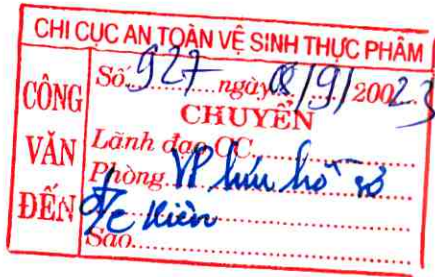 CHI CỤC AN TOÀN VỆ SINH THỰC PHẨM
CÔNG VĂN ĐẾN
Số 927 ngày 08/9/20023
CHUYỂN
Lãnh đạo CC
Phòng VP lưu hồ sơ
đ/c Kiên
Sao